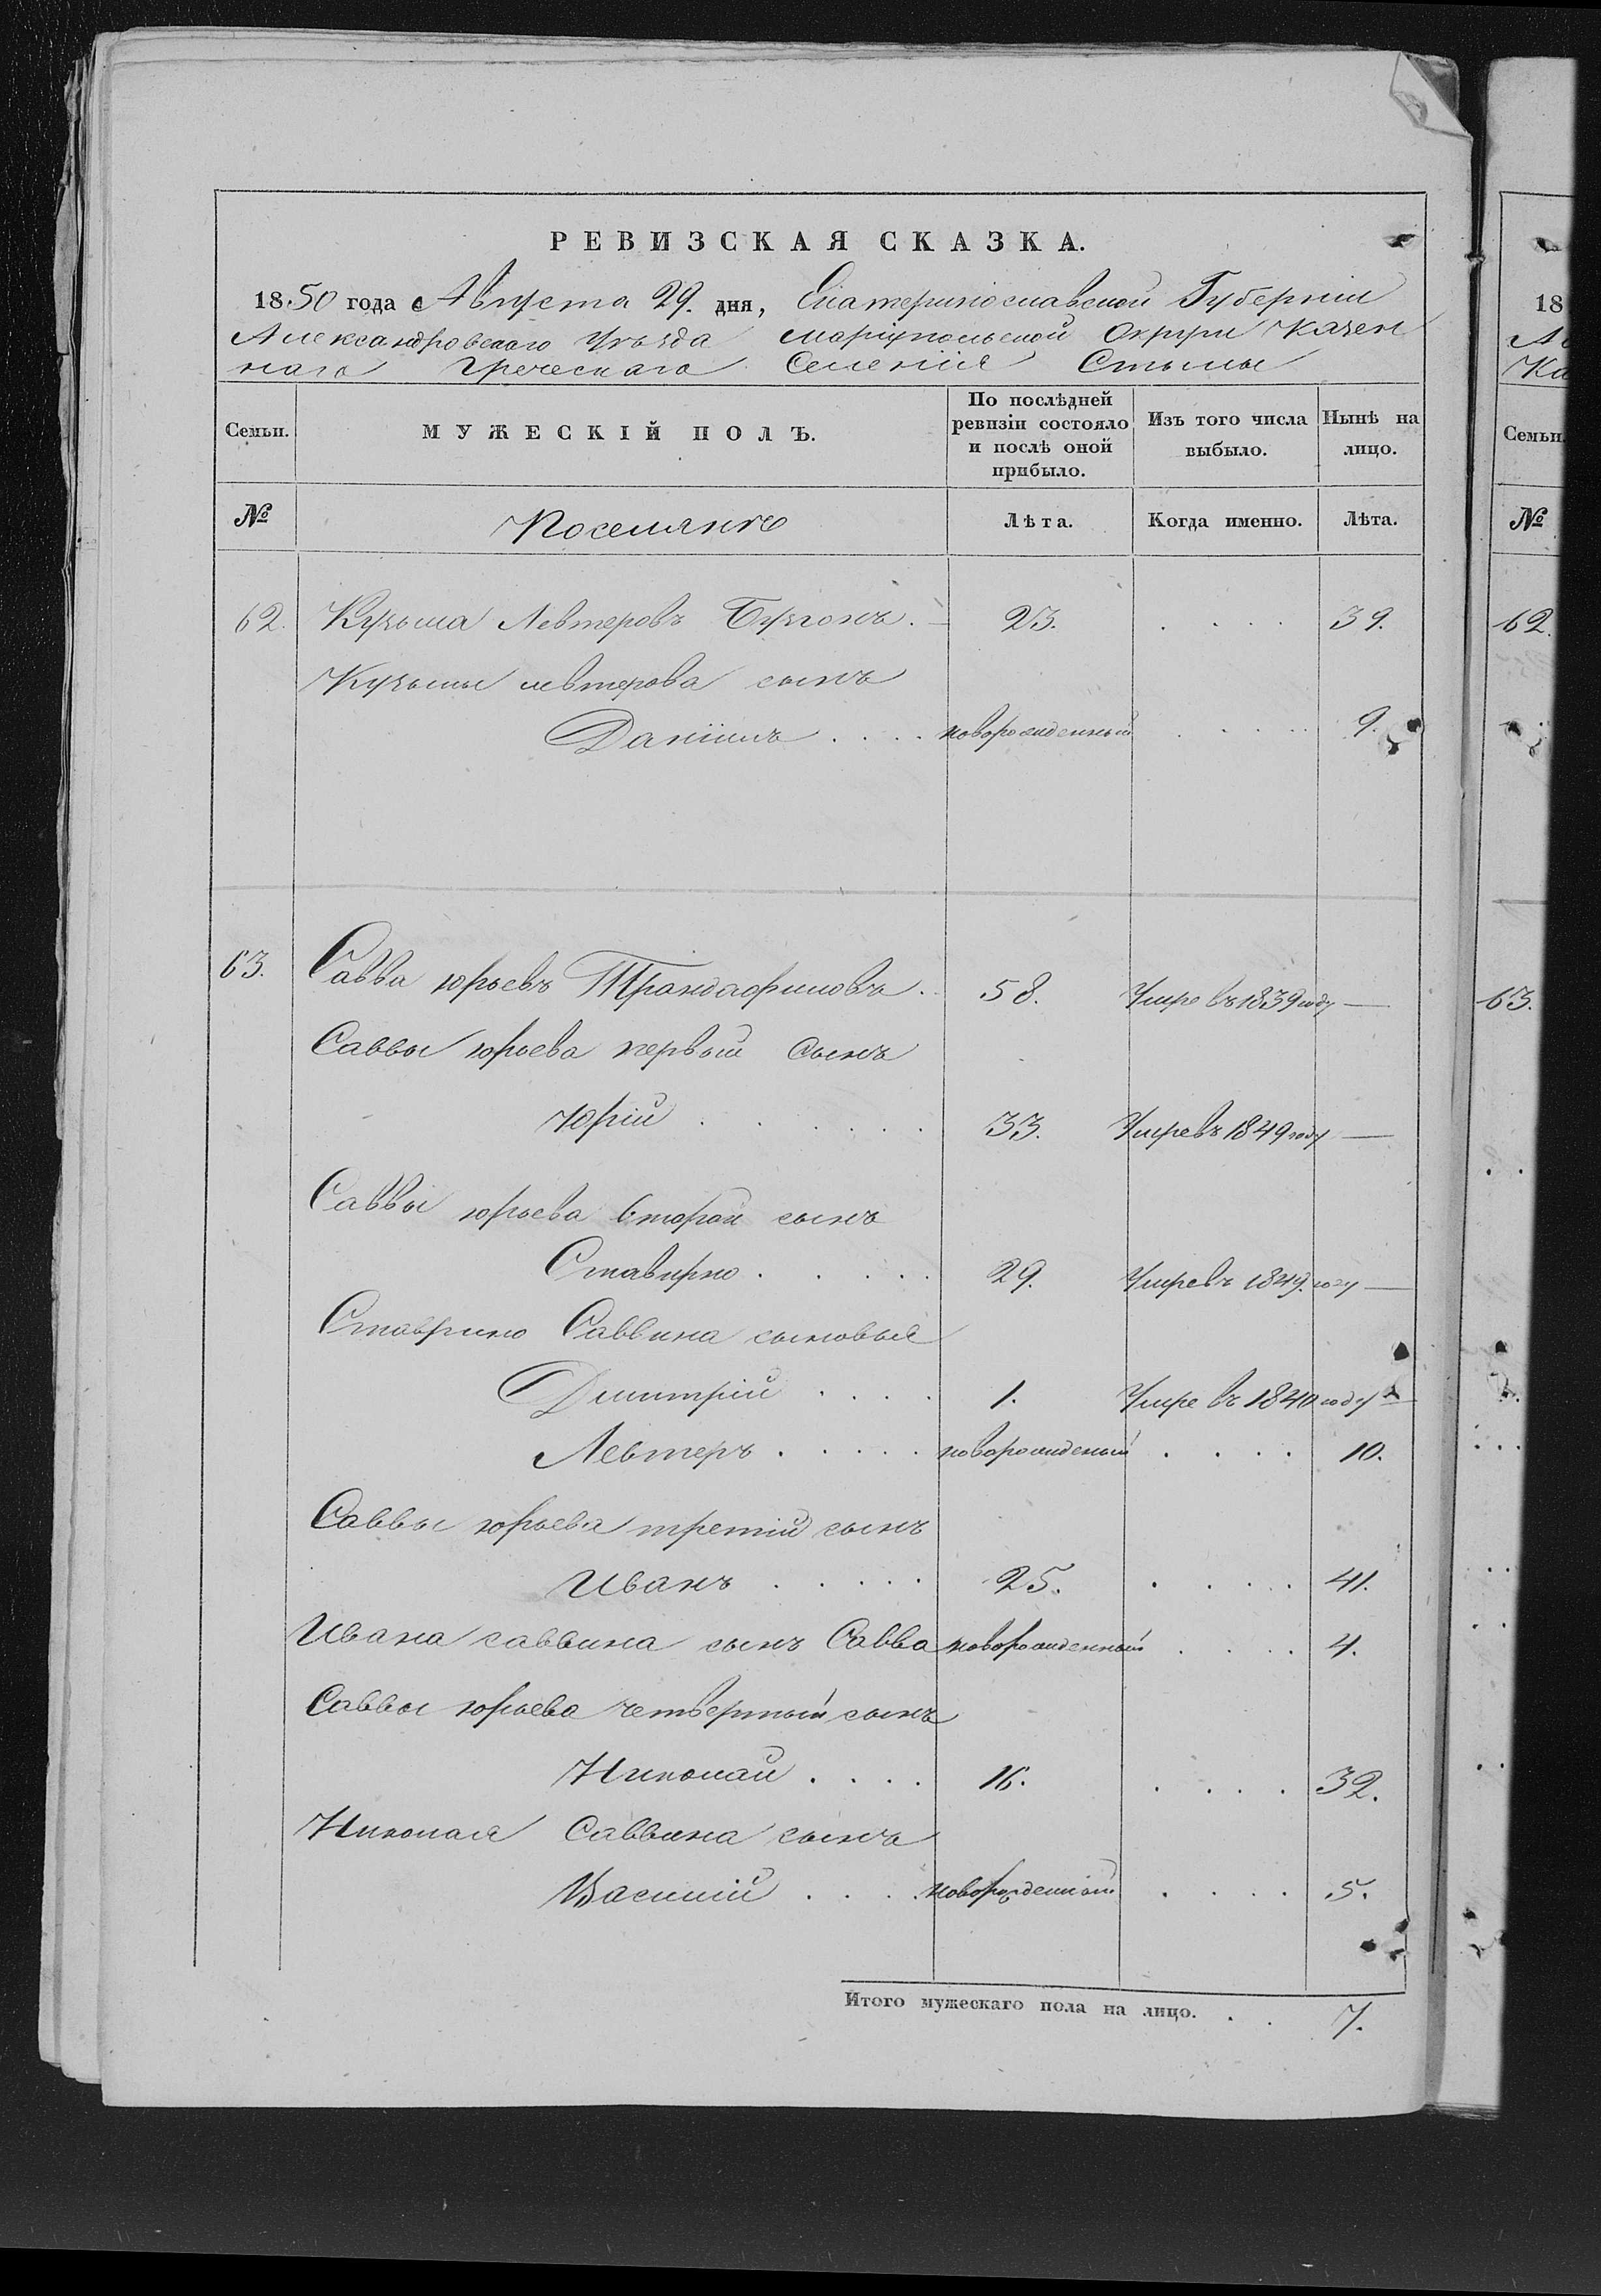 РЕВИЗСКАЯ СКАЗКА.
1850 года Августа 29. дня, Екатеринославской Губерніи
Александровскаго Уѣзда Маріупольской Округи Казен
наго Греческаго Селенія Стылы
Семьи. МУЖЕСКІЙ ПОЛЪ. По послѣдней ревизіи состояло и послѣ оной прибыло. Изъ того числа выбыло. Нынѣ на лицо.
№ Поселянѣ Лѣта. Когда именно. Лѣта.
62. Кузьма Левтеровъ 23. . . . . 39.
Кузьмы левтерова сынъ
Даніилъ . . . . новорожденный . . . . . 9.
63. Савва юрьевъ Трандафиловъ . 58. Умре въ 1839 году —
Саввы юрьева первый сынъ
Юрій . . . . . 33. Умре въ 1849 году —
Саввы юрьева второй сынъ
Ставирно . . . . . 29. Умре въ 1849. году —
Саввина сыновья
Димитрій . . . . 1. Умре въ 1840 году —
Левтеръ . . . . . новорожденый . . . . 10.
Саввы юрьева третій сынъ
Иванъ . . . . . 25. . . . . 41.
Ивана саввина сынъ Савва новорожденный . . . . 4.
Саввы юрьева четвертый сынъ
Николай . . . . 16. . . . . 32.
Николая Саввина сынъ
Василій . . . . новорожденный . . . . 5.
Итого мужескаго пола на лицо. . . 7.
18
Ка
Семьи.
№
62.
63.